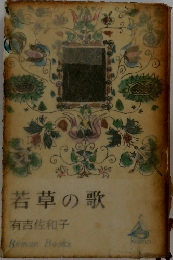 若草の歌
有吉佐和子
Roman Books